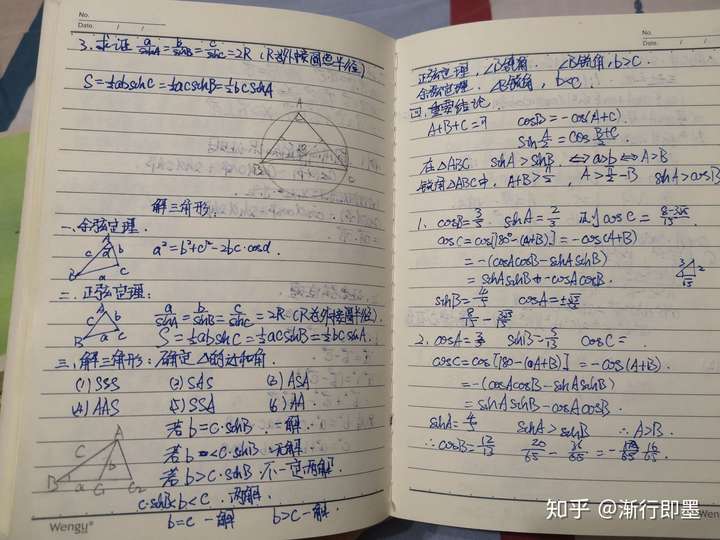 No.
Date. / /
3. 求证 a/sinA = b/sinB = c/sinC = 2R (R为外接圆半径)
S = ½absinC = ½acsinB = ½bcsinA
A
B
C
解三角形.
一. 余弦定理.
A
c α b
B a C
a² = b² + c² - 2bc·cosα.
二. 正弦定理:
A
c b
B a C
a/sinA = b/sinB = c/sinC = 2R (R为外接圆半径).
S = ½absinC = ½acsinB = ½bcsinA.
三. 解三角形: 确定△的边和角.
(1) SSS (2) SAS (3) ASA
(4) AAS (5) SSA (6) AA.
若 b = c·sinB 一解.
若 b < c·sinB 无解.
若 b > c·sinB 不一定两解.
A
C b
B a C₁ C₂
c·sinB<b<c 两解.
b=c 一解 b>c 一解.
Wengu®
No.
Date. / /
正弦定理, ∠B锐角. ∠B锐角, b>c.
余弦定理. ∠B锐角, b<c.
四. 重要结论
A+B+C=π cosB = -cos(A+C).
sin A/2 = cos (B+C)/2.
在△ABC sinA>sinB ⇔ a>b ⇔ A>B
锐角△ABC中, A+B>π/2, A>π/2-B sinA>cosB
1. cosB = 3/5 sinA = 2/3 则cosC =
cosC = cos[180°-(A+B)] = -cos(A+B)
= -(cosAcosB - sinAsinB)
= sinAsinB - cosAcosB.
3 2
√5
sinB = 4/5 cosA = ±√5/3
8/15 - 3√5/15
2. cosA = 3/5 sinB = 5/13 cosC =
cosC = cos[180-(A+B)] = -cos(A+B).
= -(cosAcosB - sinAsinB)
= sinAsinB - cosAcosB.
sinA = 4/5 sinA > sinB ∴ A>B.
∴ cosB = 12/13 20/65 - 36/65 = - 16/65.
知乎 @渐行即墨